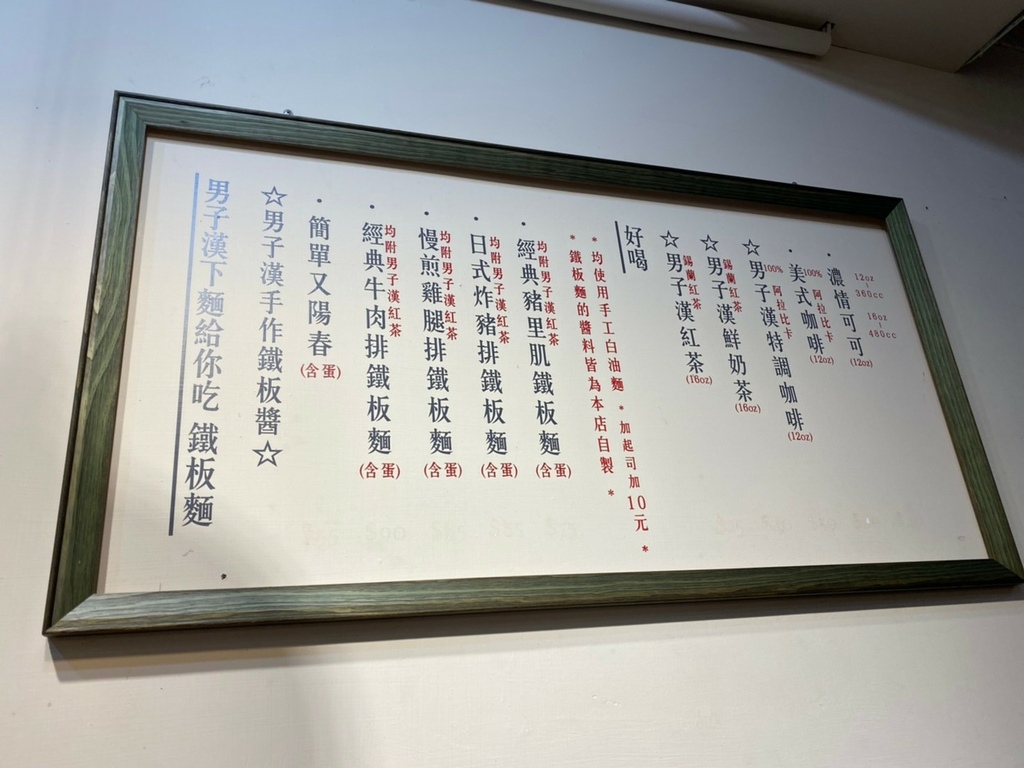 男子漢下麵給你吃 鐵板麵
☆男子漢手作鐵板醬☆
・簡單又陽春(含蛋)
・經典牛肉排鐵板麵(含蛋)
均附男子漢紅茶
・慢煎雞腿排鐵板麵(含蛋)
均附男子漢紅茶
・日式炸豬排鐵板麵(含蛋)
均附男子漢紅茶
・經典豬里肌鐵板麵(含蛋)
均附男子漢紅茶
*鐵板麵的醬料皆為本店自製*
*均使用手工白油麵 *加起司加10元*
好喝
☆男子漢紅茶(16oz)
錫蘭紅茶
☆男子漢鮮奶茶(16oz)
錫蘭紅茶
☆男子漢特調咖啡(12oz)
100%阿拉比卡
・美式咖啡(12oz)
100%阿拉比卡
・濃情可可(12oz)
12oz=360cc
16oz=480cc